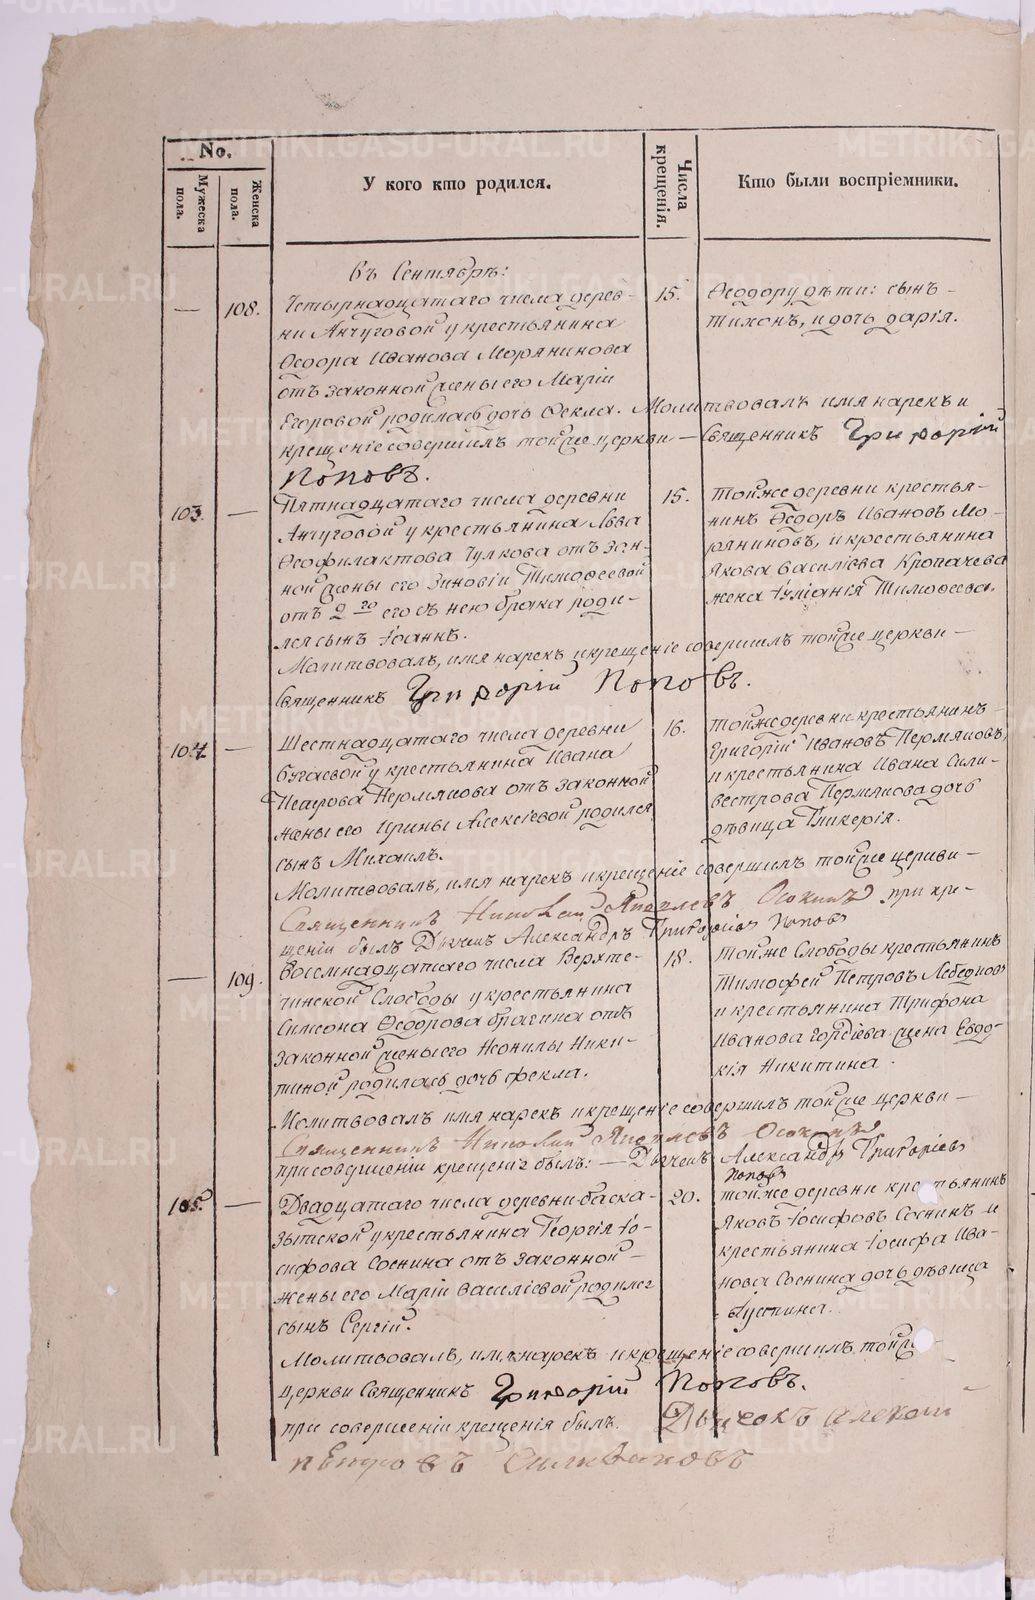 No.
Мужеска пола.
Женска пола.
У кого кто родился.
Числа крещенія.
Кто были воспріемники.
въ Сентябрѣ:
— 108. Четырнадцатаго числа дерев-
ни Анчуговой у крестьянина
Ѳеодора Иванова Морянинова
отъ законной жены его Маріи
Егоровой родилась дочь Ѳекла. Молитвовалъ имя нарекъ и
крещеніе совершилъ тойже церкви — Священникъ Григорій
Поповъ.
15. Ѳеодору дѣти: сынъ
Тихонъ, и дочь дарія.
103. — Пятнадцатаго числа деревни
Анчуговой у крестьянина Льва
Ѳеофилактова Чулкова отъ зан-
ной жены его Зиновіи Тимоѳеевой
отъ 2го его съ нею брака роди-
лся сынъ Іоаннъ.
Молитвовалъ, имя нарекъ и крещеніе совершилъ тойже церкви —
Священникъ Григорій Поповъ.
15. Тойже деревни крестья-
нинъ Ѳедоръ Ивановъ Мо-
ряниновъ, и крестьянина
Якова Василіева Кропачева
жена Іуліанія Тимоѳеева.
104 — Шестнадцатаго числа деревни
Бугаевой у крестьянина Ивана
Петрова Пермякова отъ законной
жены его Ирины Алексіевой родился
сынъ Михаилъ.
Молитвовалъ, имя нарекъ и крещеніе совершилъ тойже церкви —
Священникъ Николай Яковлевъ Осокинъ при кре-
щеніи былъ Дьячекъ Александръ Григорьевъ Поповъ
16. Тойже деревни крестьянинъ
Григорій Ивановъ Пермяковъ,
и крестьянина Ивана Сили-
вестрова Пермякова дочь
дѣвица Гликерія.
— 109. Восемнадцатаго числа Верхте-
чинской Слободы у крестьянина
Симеона Ѳедорова Брагина отъ
законной жены его Неонилы Ники-
тиной родилась дочь Ѳекла.
Молитвовалъ имя нарекъ и крещеніе совершилъ тойже церкви —
Священникъ Николай Яковлевъ Осокинъ
при совершеніи крещенія былъ: — Дьячекъ Александръ Григоріевъ
Поповъ
18. Тойже Слободы крестьянинъ
Тимофей Петровъ Лебедковъ
и крестьянина Трифона
Иванова Гордіева жена Евдо-
кія Никитина.
105. — Двадцатаго числа деревни Баска-
зытской у крестьянина Георгія Іо-
сифова Соснина отъ законной
жены его Маріи Василіевой родился
сынъ Сергій.
Молитвовалъ, имя нарекъ и крещеніе совершилъ тойже
церкви Священникъ Григорій Поповъ.
при совершеніи крещенія былъ. Дьячекъ Алексей
Петровъ
20. Тойже деревни крестьянинъ
Яковъ Іосифовъ Соснинъ и
крестьянина Іосифа Ива-
нова Соснина дочь дѣвица
Іустина.
METRIKI.GASU-URAL.RU